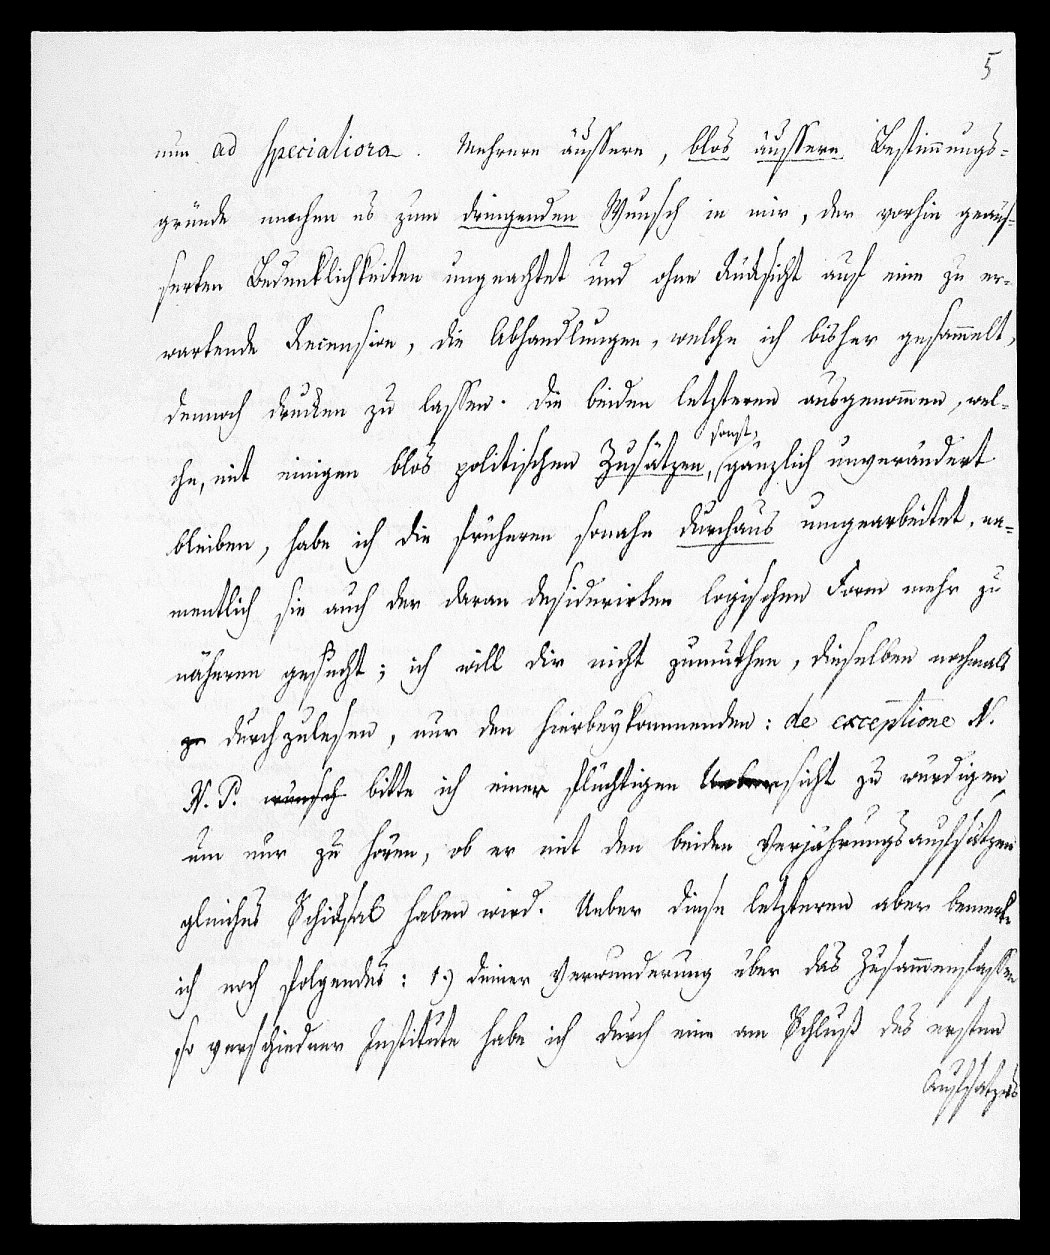 5
nun ad specialiora. Mehrere äussere, blos äussere Bestimmungs-
gründe machen es zum dringenden Wunsch in mir, der vorhin geäus-
serten Bedenklichkeiten ungeachtet und ohne Rücksicht auf eine zu er-
wartende Recension, die Abhandlungen, welche ich bisher gesammelt,
dennoch drucken zu lassen. Die beiden letzteren ausgenommen, wel-
che, mit einigen blos politischen Zusätzen, sonst gänzlich unverändert
bleiben, habe ich die früheren sonahe durchaus umgearbeitet, na-
mentlich sie auch der daran desiderirten logischen Form mehr zu
näheren gesucht; ich will dir nicht zumuthen, dieselben nochmals
zu durchzulesen, nur den hierbeykommenden: de exceptione N.
N. P. wunsch bitte ich einer flüchtigen Uebersicht zu würdigen,
um nur zu hören, ob er mit den beiden Verjährungsaufsätzen
gleiches Schicksal haben wird. Ueber diese letzteren aber bemerke
ich noch folgendes: 1.) deiner Verwunderung über das Zusammenfassen
so verschiedner Institute habe ich durch eine am Schluß des ersten
Aufsatzes